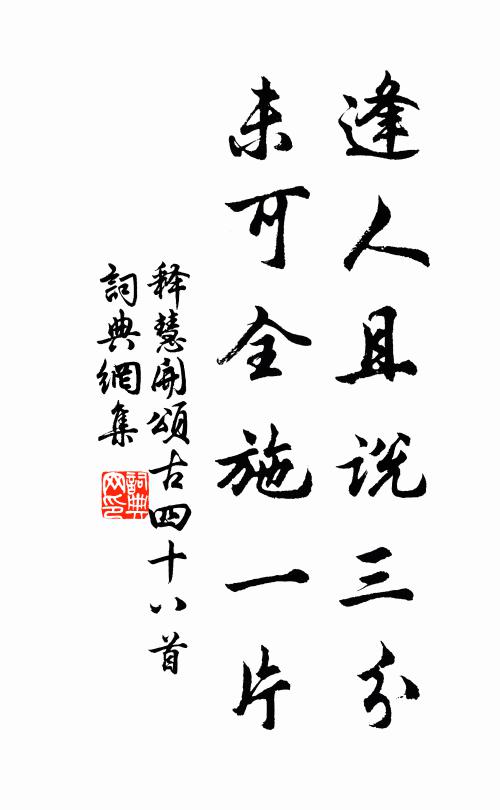 逢人且说三分
未可全施一片
释慧開頌古四十八首
詞典網集
詞典网印